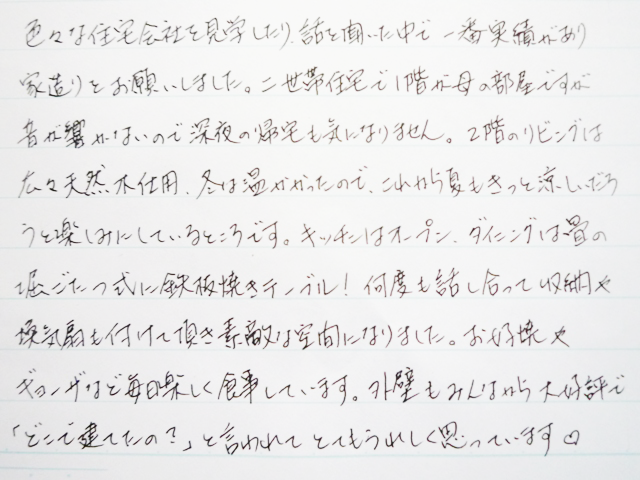 色々な住宅会社を見学したり、話を聞いた中で一番実績があり
家造りをお願いしました。二世帯住宅で1階が母の部屋ですが
音が響かないので深夜の帰宅も気になりません。2階のリビングは
広々天然木仕用、冬は温かかったので、これから夏もきっと涼しいだろ
うと楽しみにしているところです。キッチンはオープン、ダイニングは畳の
堀ごたつ式に鉄板焼きテーブル!何度も話し合って収納や
換気扇も付けて頂き素敵な空間になりました。お好焼や
ギョーザなど毎日楽しく食事しています。外壁もみんなから大好評で
「どこで建てたの?」と言われてとてもうれしく思っています♡